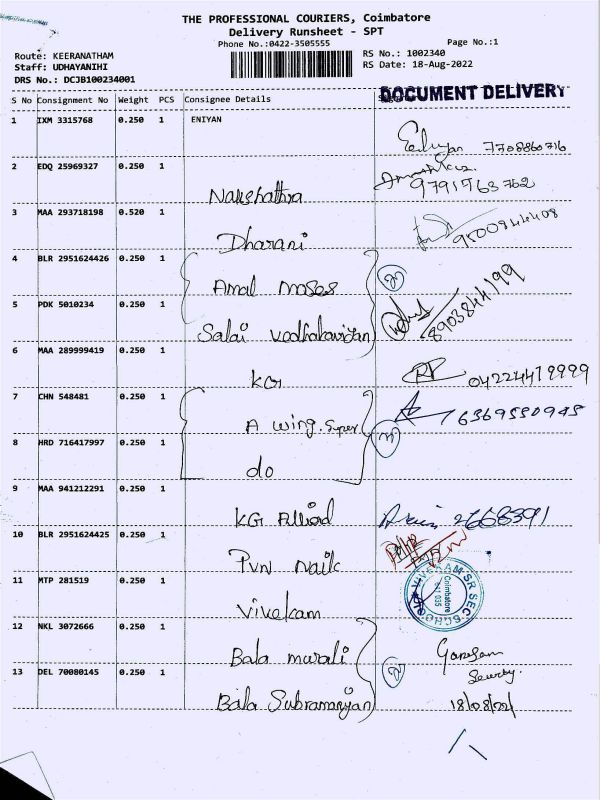 THE PROFESSIONAL COURIERS, Coimbatore
Delivery Runsheet - SPT
Phone No.:0422-3505555
Page No.:1
Route: KEERANATHAM
RS No.: 1002340
Staff: UDHAYANIHI
RS Date: 18-Aug-2022
DRS No.: DCJB100234001
DOCUMENT DELIVERY
S No Consignment No Weight PCS Consignee Details
1 IXM 3315768 0.250 1 ENIYAN
7708860716
2 EDQ 25969327 0.250 1
Nakshathra 9791763762
3 MAA 293718198 0.520 1
Dharani 9500944408
4 BLR 2951624426 0.250 1
Amal moses
5 PDK 5010234 0.250 1
8903844199
6 MAA 289999419 0.250 1
KG RP 04224419999
7 CHN 548481 0.250 1
A wing. Super 6369580948
8 HRD 716417997 0.250 1
do
9 MAA 941212291 0.250 1
KG 2668391
10 BLR 2951624425 0.250 1
Pvn Naik
11 MTP 281519 0.250 1
Vivekam
VIVEKAM SR SEC SCHOOL
Coimbatore
641 035
12 NKL 3072666 0.250 1
Bala murali Ganesan
13 DEL 70080145 0.250 1
Bala Subramaniyan 18/08/22